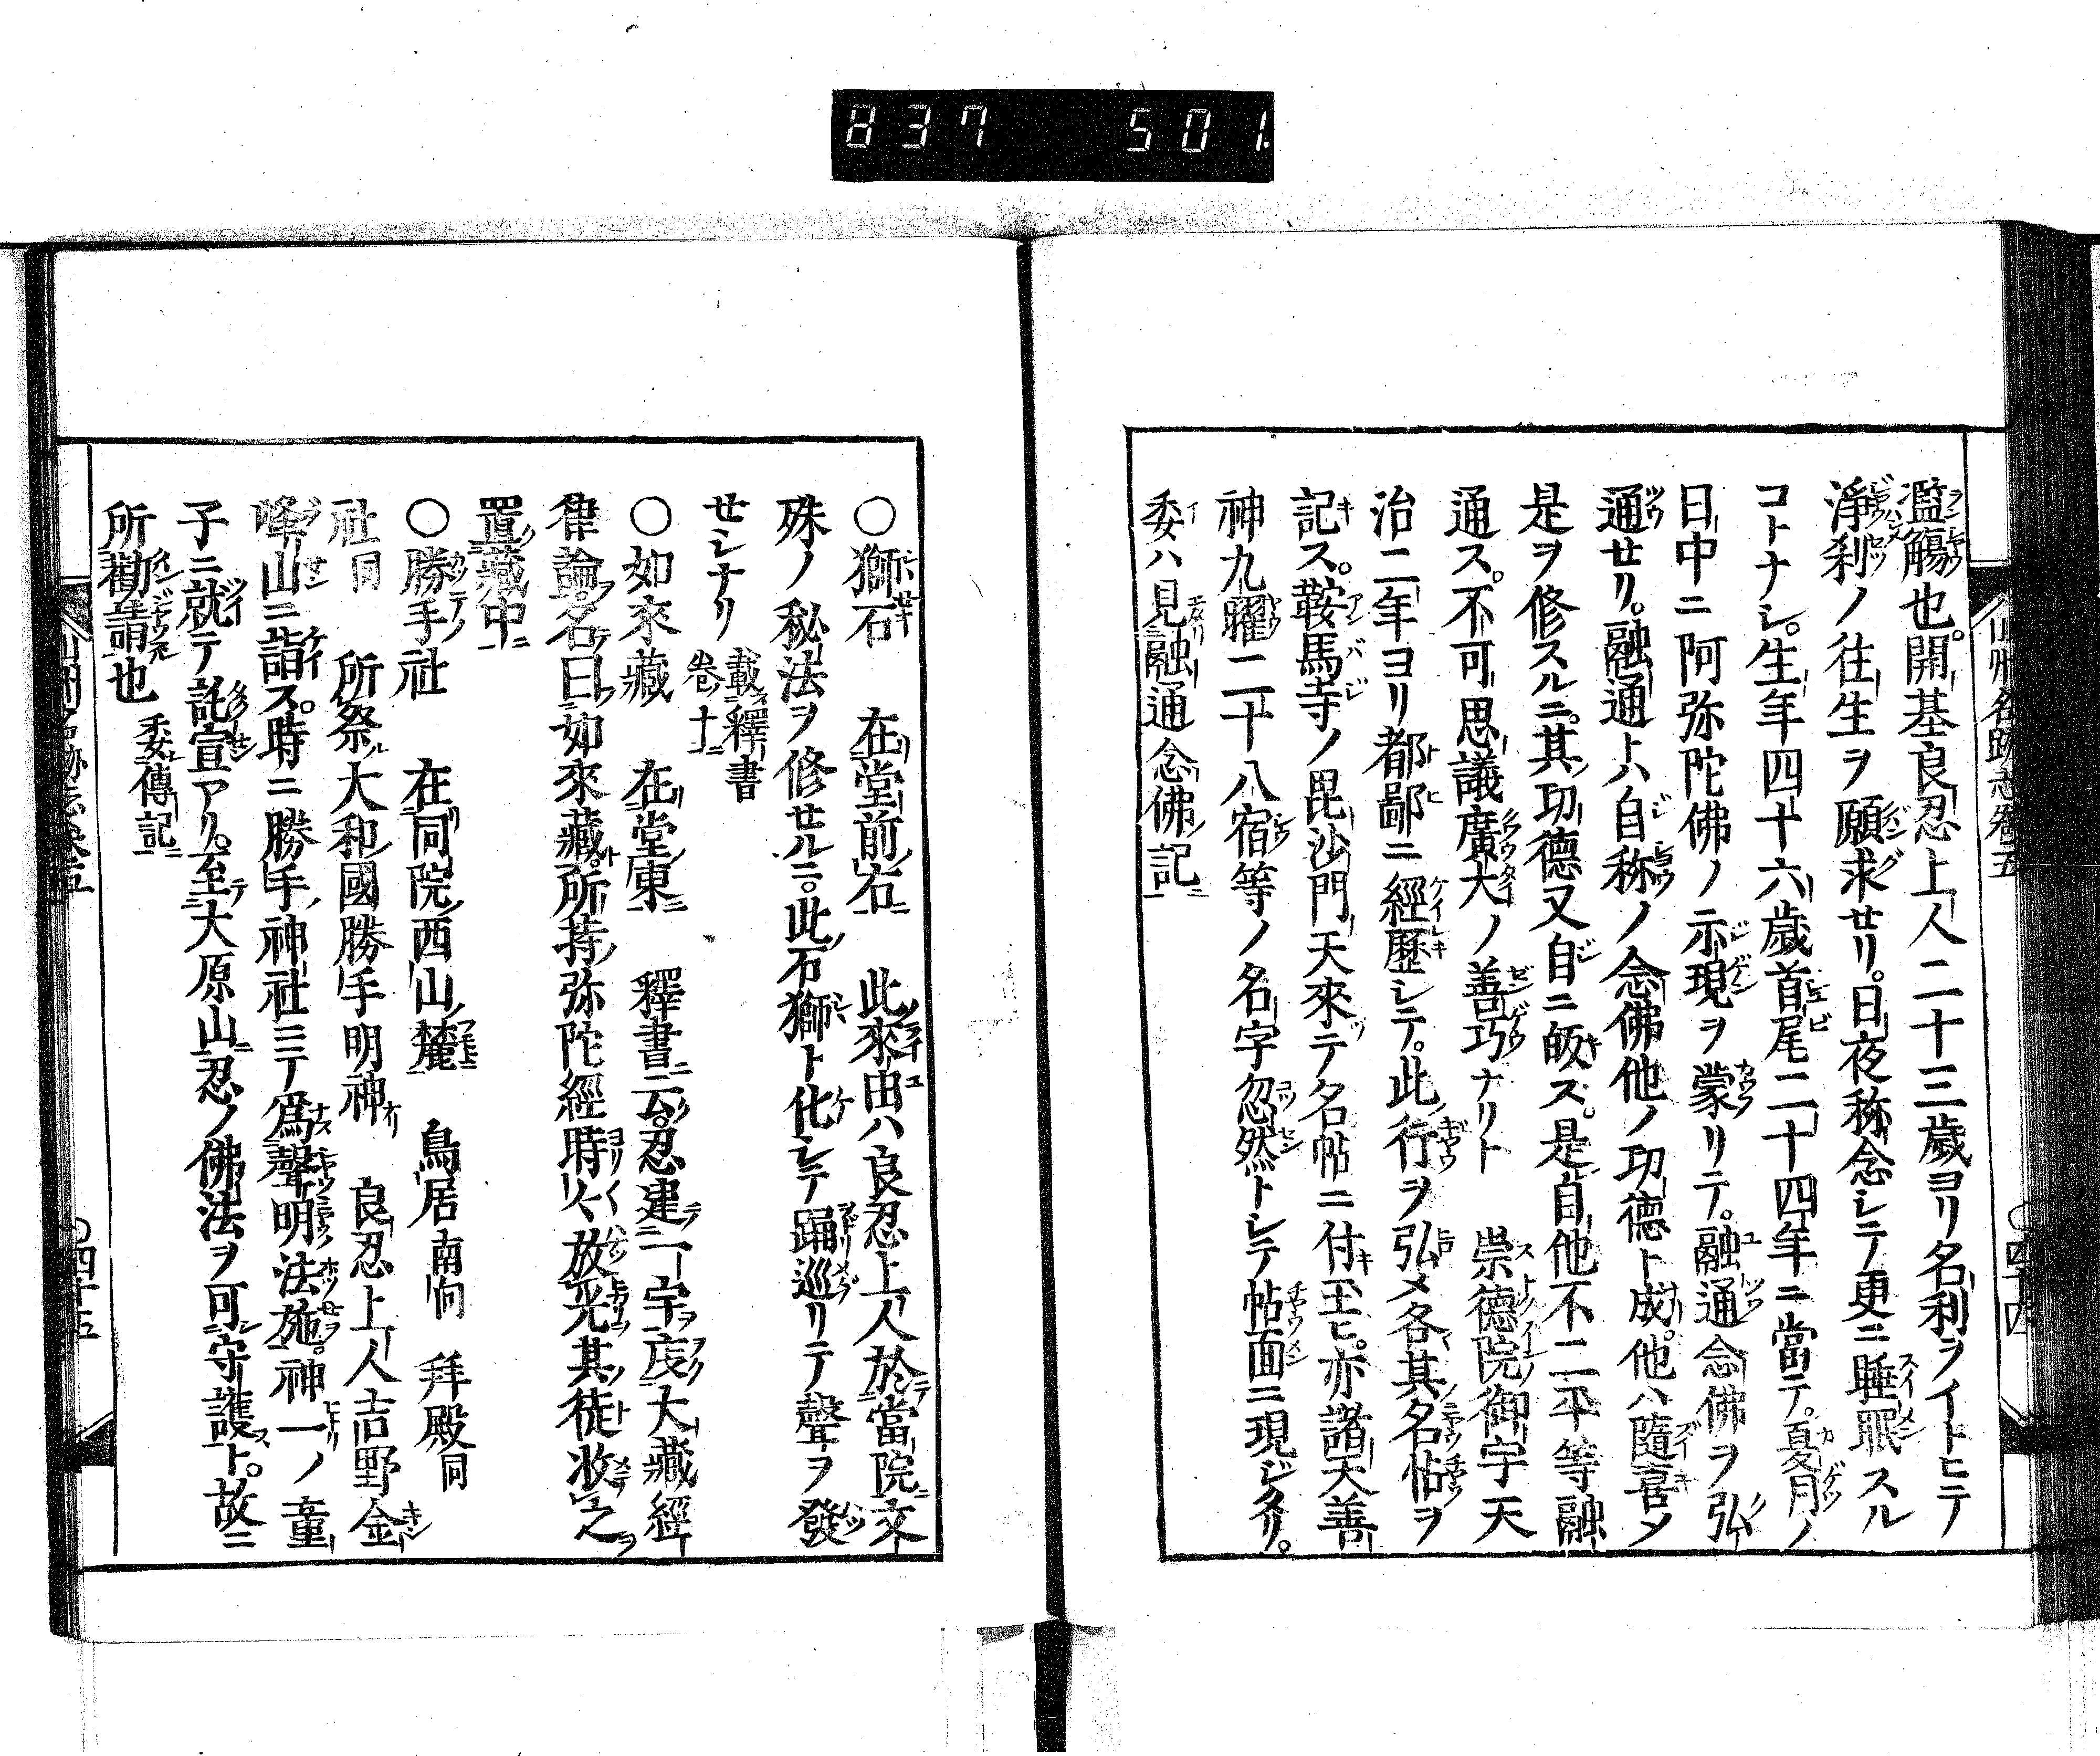 837 501.
濫觴也。開基良忍上人二十三歳ヨリ名利ヲイトヒテ
淨刹ノ往生ヲ願求せリ。日夜称念シテ更ニ睡眠スル
コトナシ。生年四十六歳首尾二十四年ニ當テ。夏月ノ
日中ニ阿弥陀佛ノ示現ヲ蒙リテ。融通念佛ヲ弘
通せリ。融通トハ自称ノ念佛他ノ功德ト成。他ハ隨喜〆
是ヲ修スルニ。其功德又自ニ皈ス。是自他不二平等融
通ス。不可思議廣大ノ善巧ナリト 崇德院御宇天
治二年ヨリ都鄙ニ經歷シテ。此行ヲ弘メ各其名帖ヲ
記ス。鞍馬寺ノ毘沙門天來テ名帖ニ付玉ヒ。亦諸天善
神九曜二十八宿等ノ名字忽然トシテ帖面ニ現ジタリ。
委ハ見融通念佛記
山州名跡志卷五
〇四十四
〇獅石 在堂前右 此來由ハ良忍上人於當院文
殊ノ秘法ヲ修せルニ。此石獅ト化シテ踊巡リテ聲ヲ發
せシナリ 載釋書卷十
〇如來藏 在堂東 釋書云。忍建一宇庋大藏經
律論。名曰如來藏。所持弥陀經時々放光其徒收之
置藏中
〇勝手社 在同院西山麓 鳥居南向 拜殿同
社同 所祭大和國勝手明神 良忍上人吉野金
峰山ニ詣ス。時ニ勝手神社ニテ爲聲明法施。神一ノ童
子ニ就テ託宣アリ。至大原山忍ノ佛法ヲ可守護ト。故ニ
所勸請也 委傳記
山州名跡志卷五
〇四十五